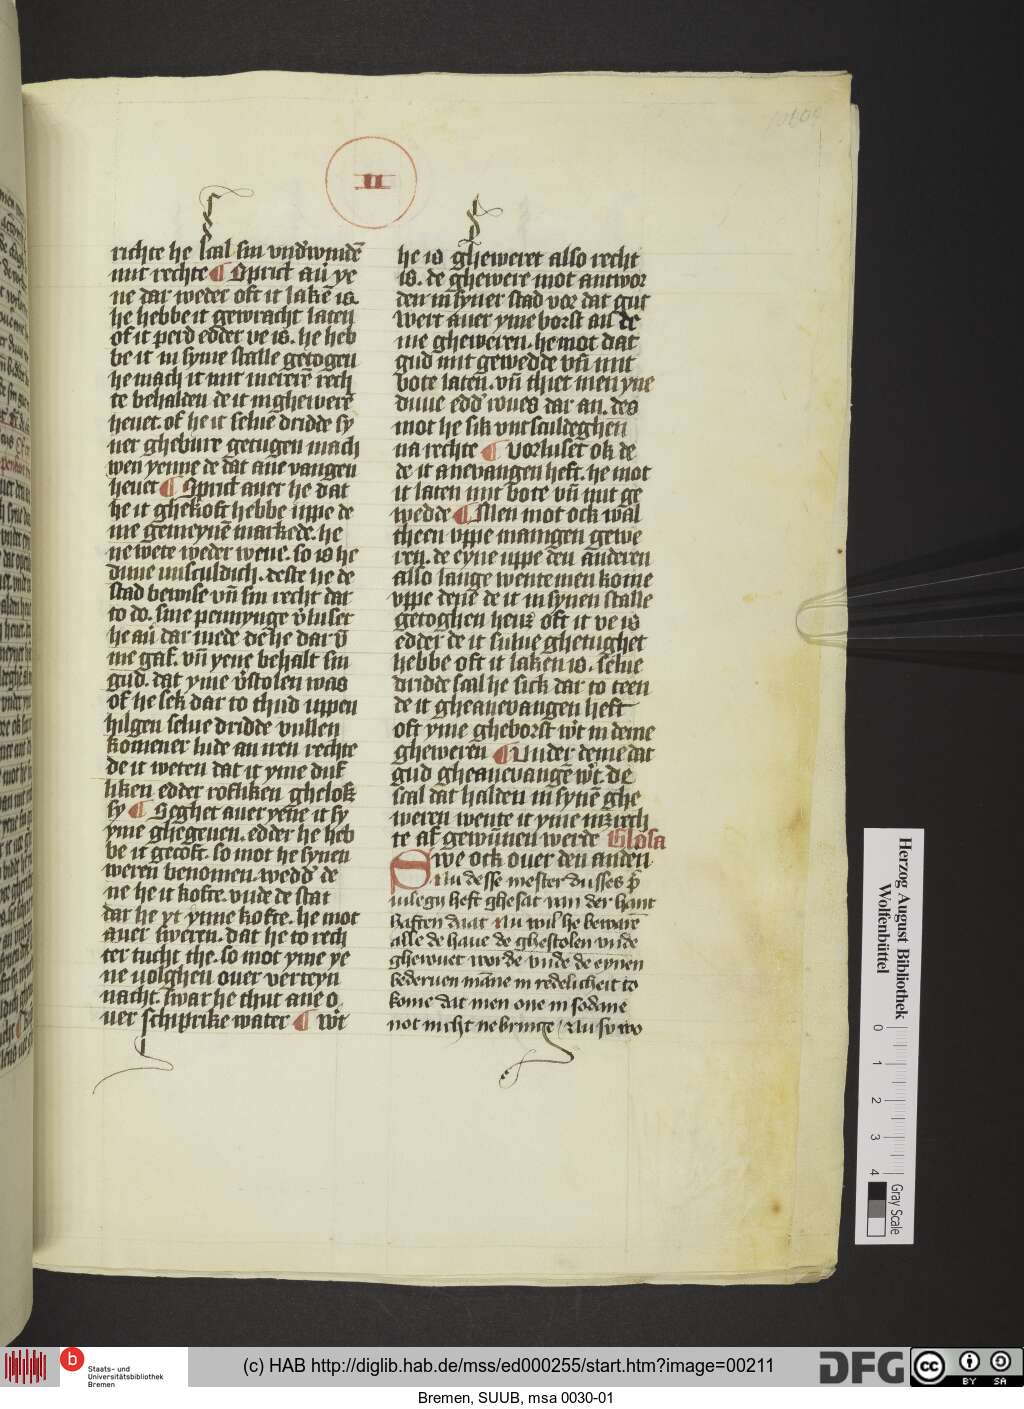 II
richte he scal sin vnd'windē
mit rechte ¶ Sprict au̓ ye
ne dar weder oft it lakē is.
he hebbe it gewracht laten
of it perd edder ve is. he heb
be it in syme stalle getogen
he mach it mit mererē rech
te behalden de it in ghewere
heuet. of he it seluē dridde sy
ner ghebure getugen mach
wen yenne de dat ane vangen
heuet ¶ Sprict auer he dat
he it ghekoft hebbe uppe de
me gemeynē markede. he
ne wete weder wene. so is he
duue unsculdich. deste he de
stad bewise vn̄ sin recht dar
to do. sine pennynge v̓luset
he au̓ dar mede die he dar v̄
me gaf. vn̄ yene behalt sin
gud. dat yme v̓stolen was
of he sek dar to thud uppen
hilgen selue dridde vullen
komener lude an uren rechte
de it weten dat it yme duf
liken edder rofliken ghelok
sy ¶ Seghet auer yēne it sy
yme ghegeuen. edder he heb
be it gecoft. so mot he synen
weren benomen. wedd' de
ne he it kofte. vnde de stat
dar he yt ynne kofte. he mot
auer sweren. dat he to rech
ter tucht the. so mot yme ye
ne uolghen ouer verteyn
nacht. swar he thut ane o
uer schiprike water ¶ W't
he is gheweret also recht
is. de ghewere mot antwor
den in syner stad vor dat gut
Wert auer yme borst an de
me gheweren. he mot dat
gud mit gewedde vn̄ mit
bote laten. vn̄ thiet men yne
duue edd' roues dar an. des
mot he sik untsculdeghen
na rechte ¶ Vorluset ok de
de it anevangen heft. he mot
it laten mit bote vn̄ mit ge
wedde ¶ Men mot ock wal
theen vppe mannigen gewe
ren. de eyne uppe den anderen
also lange wente men kome
vppe dene de it in synen stalle
getoghen heuet oft it ve is
edder de it sulue ghetughet
hebbe oft it laken is. selue
dridde scal he sick dar to teen
de it gheanevangen heft
oft yme gheborst w't in deme
gheweren ¶ Under deme dat
gud gheanevangē w't die
scal dat halden in synē ghe
weren wente it yme mit rech
te af gewunnen werde Glosa
Swe ock ouer den anden
Nu desse mester dusses p̄
uilegy heft ghesat van der hant
haften daat Nu wil he bewarē
alle de haue de ghestolen vnde
gherouet worde vnde de eynen
bederuen māne in redelicheit to
kome dat men one in sodane
not nicht ne bringe / Nu sy wo
Herzog August Bibliothek
Wolfenbüttel
0 1 2 3 4
Gray Scale
b
Staats- und
Universitätsbibliothek
Bremen
(c) HAB http://diglib.hab.de/mss/ed000255/start.htm?image=00211
DFG
cc BY SA
Bremen, SUUB, msa 0030-01